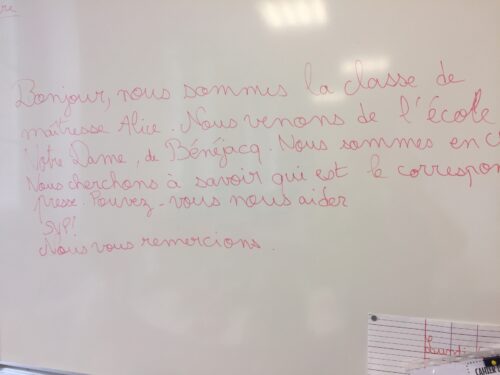 re
Bonjour, nous sommes la classe de
maîtresse Alice. Nous venons de l'école
Notre Dame, de Bénéjacq. Nous sommes en C
Nous cherchons à savoir qui est le correspon
presse. Pouvez-vous nous aider
SVP!
Nous vous remercions.
Lundi
CAHIER